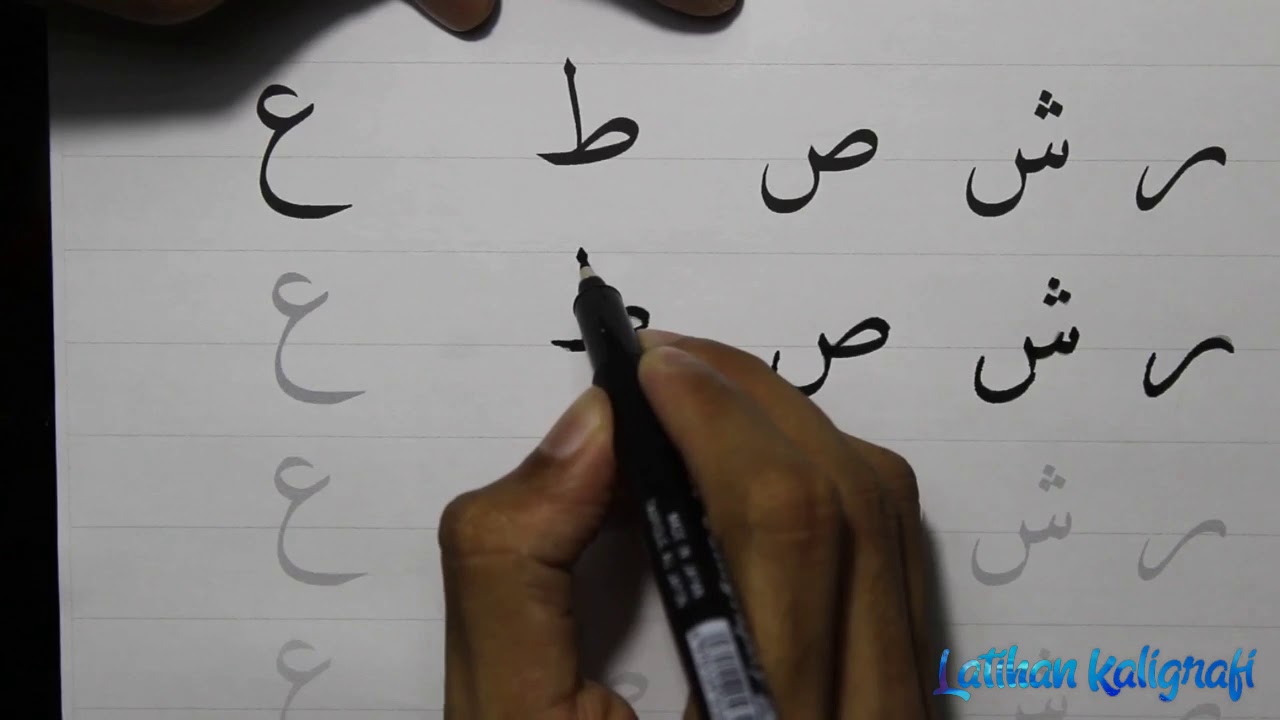 ر ش ص ط ع
ر ش ص ط ع
ر ش ع
ع
Latihan Kaligrafi